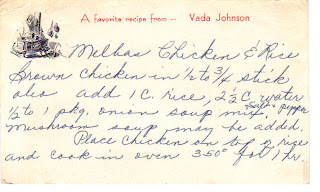 A favorite recipe from — Vada Johnson
Melbas Chicken & Rice
Brown Chicken in 1/2 to 3/4 stick
oleo add 1 C. rice, 2 1/2 C. water
1/2 to 1 pkg. onion soup mix, salt, pepper
mushroom soup may be added.
Place Chicken on top of rice
and cook in oven 350° for 1 hr.